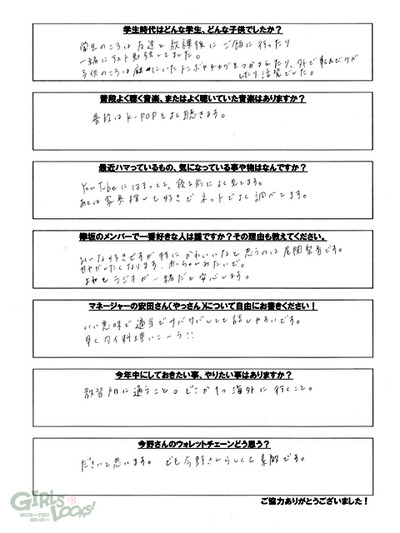 学生時代はどんな学生、どんな子供でしたか？
学生のころは友達と放課後にご飯に行ったり
一緒にテスト勉強してました。
子供のころは庭にいたトンボやチョウをつかまえたり、外で
したり活発でした。
普段よく聴く音楽、またはよく聴いていた音楽はありますか？
普段はK-POPをよく聴きます。
最近ハマっているもの、気になっている事や物はなんですか？
YouTubeにはまってて、寝る前によく見てます。
あとは家具探しも好きでネットでよく調べてます。
欅坂のメンバーで一番好きな人は誰ですか？その理由も教えてください。
みんな好きですが特にかわいいなと思うのは尾関梨香です。
赤ちゃんみたいで。
ラジオが一緒だと安心します。
マネージャーの安田さん（やっさん）について自由にお書きください！
いい意味で適当でサバサバしてて話しやすいです。
早くタイ料理いこーう!!
今年中にしておきたい事、やりたい事はありますか？
教習所に通うこと。どこかで海外に行くこと。
今野さんのウォレットチェーンどう思う？
ださいと思います。でも今野さんらしくて素敵です。
GIRLS LOCKS!
ご協力ありがとうございました！